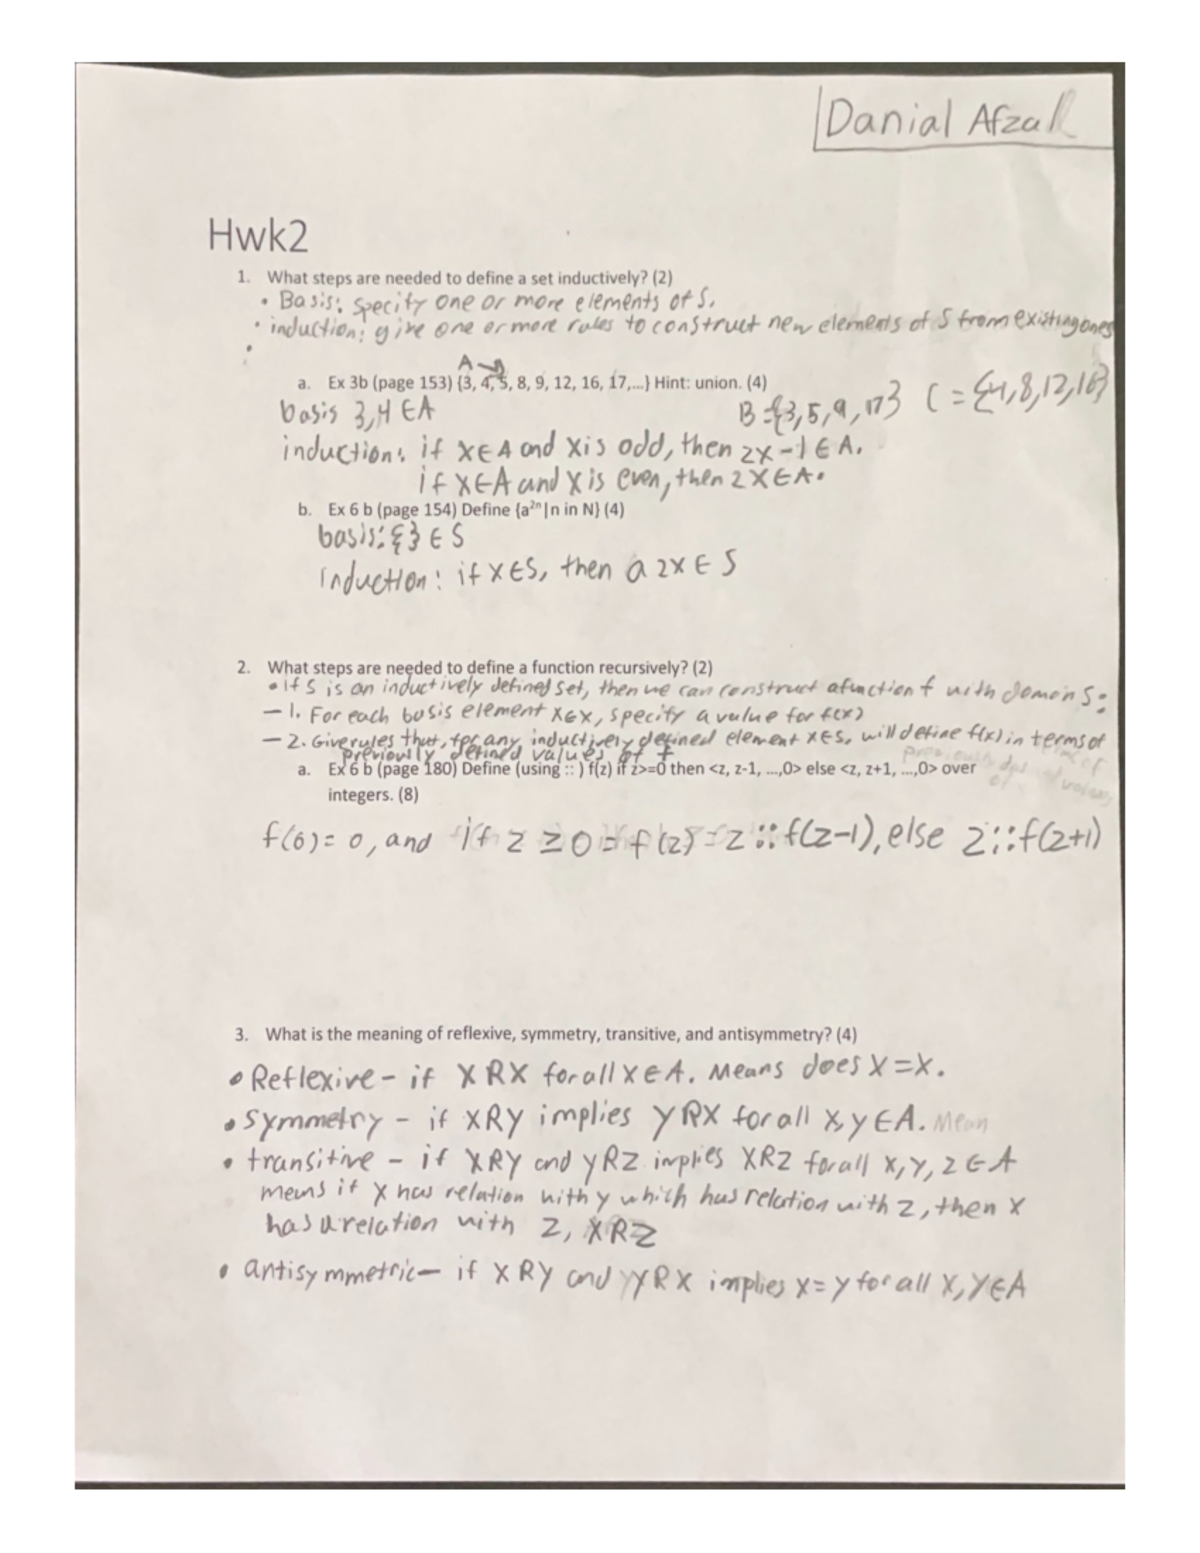 Danial Afzal
Hwk2
1. What steps are needed to define a set inductively? (2)
• Basis: specify one or more elements of S.
• induction: give one or more rules to construct new elements of S from existing ones
•
A
a. Ex 3b (page 153) {3, 4, 5, 8, 9, 12, 16, 17,...} Hint: union. (4)
basis 3,4 ∈ A B={3,5,9,17} C = {4,8,12,16}
induction: if x∈A and x is odd, then 2x-1 ∈ A.
if x∈A and x is even, then 2x∈A.
b. Ex 6 b (page 154) Define {a²ⁿ|n in N} (4)
basis: {} ∈ S
induction: if x∈S, then a 2x ∈ S
2. What steps are needed to define a function recursively? (2)
• If S is an inductively defined set, then we can construct a function f with domain S:
- 1. For each basis element x∈x, specify a value for f(x)
- 2. Give rules that, for any inductively defined element x∈S, will define f(x) in terms of
previously defined values of f
a. Ex 6 b (page 180) Define (using :: ) f(z) if z>=0 then <z, z-1, ...,0> else <z, z+1, ...,0> over
integers. (8)
f(0)= 0, and if z ≥ 0 = f(z) = z :: f(z-1), else z :: f(z+1)
3. What is the meaning of reflexive, symmetry, transitive, and antisymmetry? (4)
• Reflexive - if xRx for all x∈A. Means does x=x.
• Symmetry - if xRy implies yRx for all x,y∈A. Mean
• transitive - if xRy and yRz implies xRz for all x,y,z∈A
means if x has relation with y which has relation with z, then x
has a relation with z, xRz
• antisymmetric- if xRy and yRx implies x=y for all x,y∈A